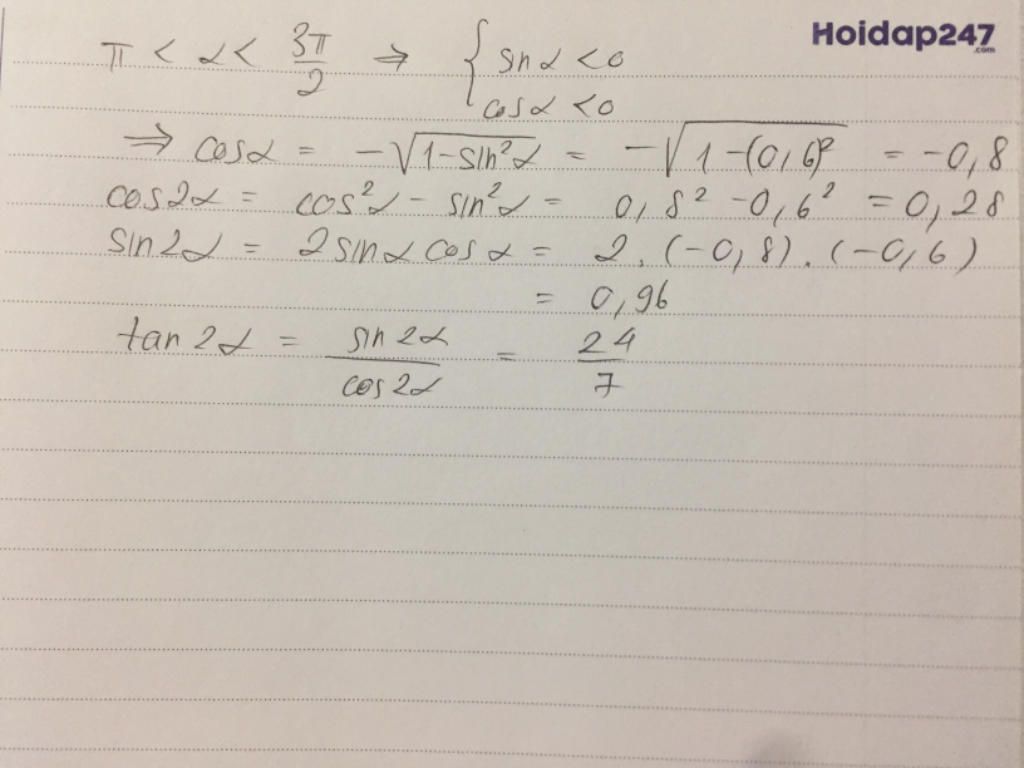 Hoidap247
.com
π < α < 3π/2 ⇒ { sin α < 0
cos α < 0
⇒ cos α = -√(1-sin²α) = -√(1-(0,6)²) = -0,8
cos2α = cos²α - sin²α = 0,8² - 0,6² = 0,28
sin2α = 2sinα cosα = 2.(-0,8).(-0,6)
= 0,96
tan2α = sin2α/cos2α = 24/7